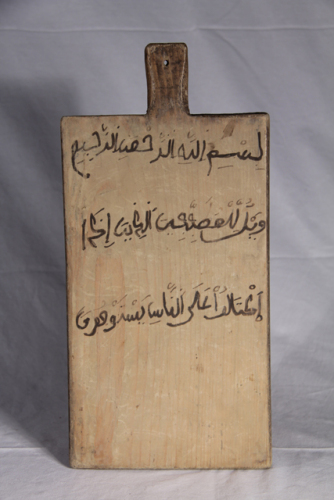 بِسْمِ اللَّهِ الرَّحْمَنِ الرَّحِيمِ
وَيْلٌ لِّلْمُطَفِّفِينَ الَّذِينَ إِذَا
اكْتَالُوا عَلَى النَّاسِ يَسْتَوْفُونَ